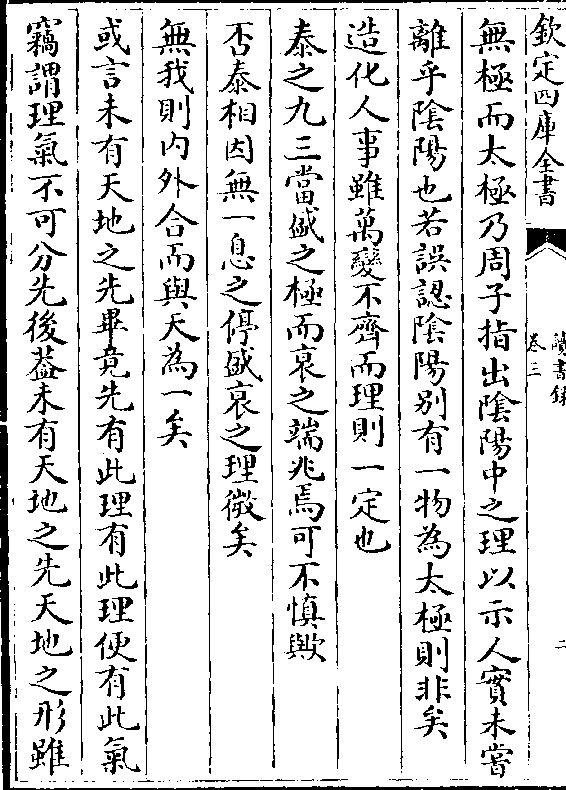 欽定四庫全書
讀書錄
卷三
二
無極而太極乃周子指出陰陽中之理以示人實未嘗
離乎陰陽也若誤認陰陽别有一物為太極則非矣
造化人事雖萬變不齊而理則一定也
泰之九三當盛之極而衰之端兆焉可不慎歟
否泰相因無一息之停盛衰之理微矣
無我則内外合而與天為一矣
或言未有天地之先畢竟先有此理有此理便有此氣
竊謂理氣不可分先後葢未有天地之先天地之形雖